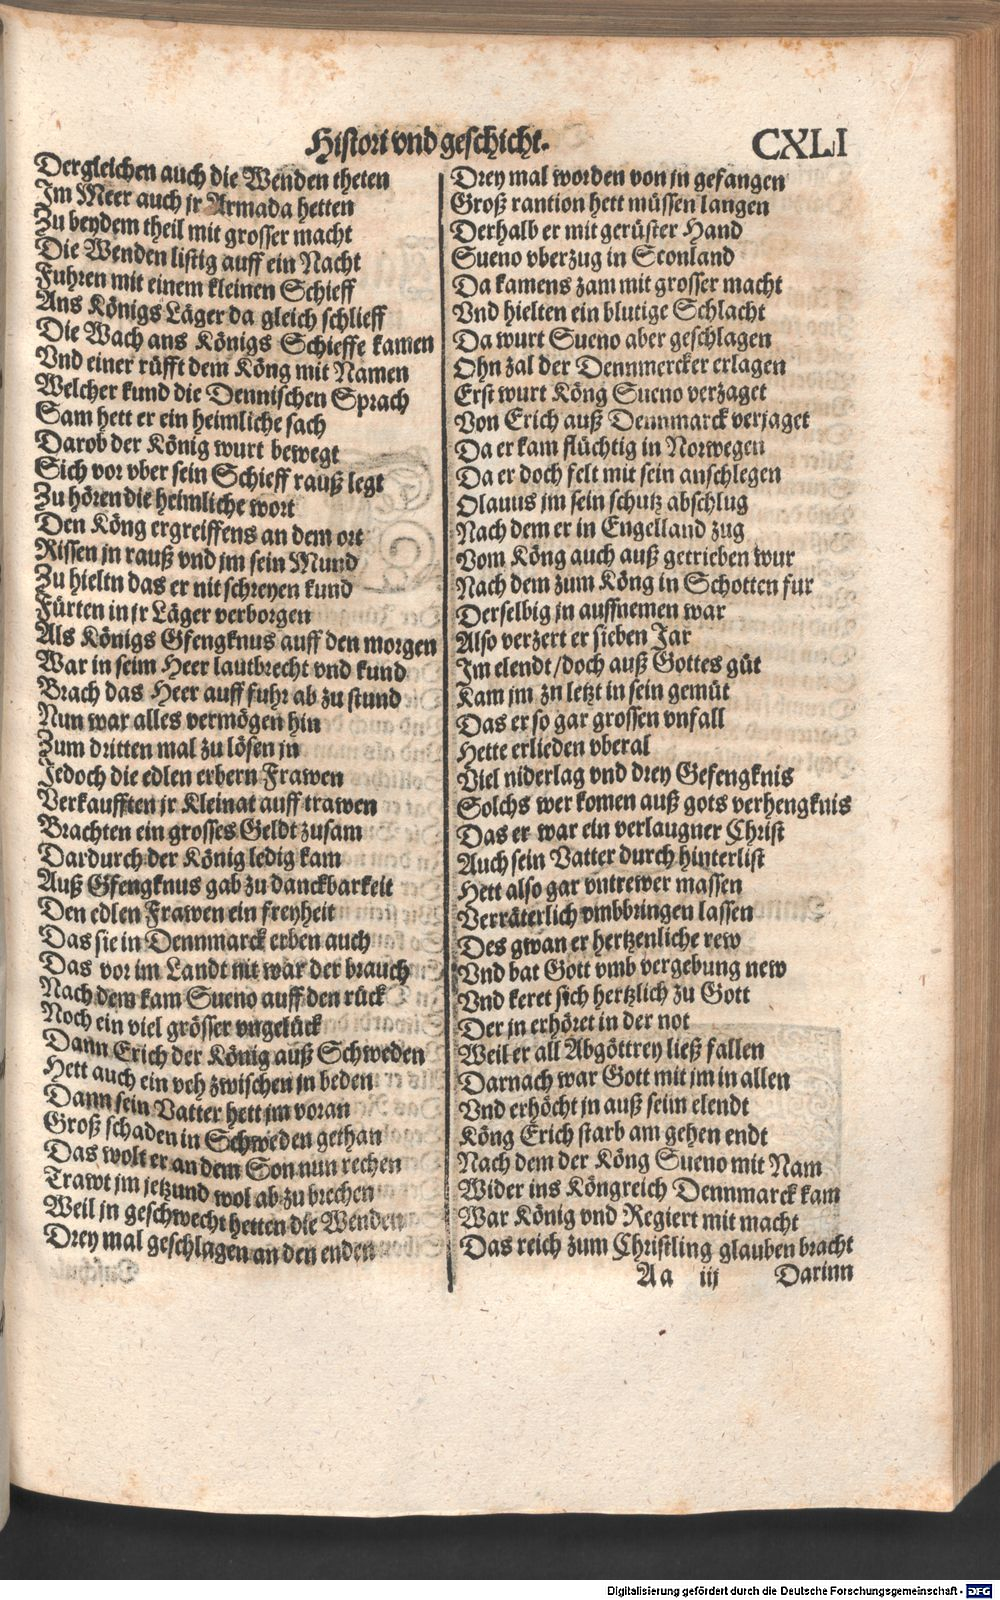 Histori vnd geschicht.
CXLI
Dergleichen auch die Wenden theten
Im Meer auch jr Armada hetten
Zu beydem theil mit grosser macht
Die Wenden listig auff ein Nacht
Fuhren mit einem kleinen Schieff
Ans Königs Läger da gleich schlieff
Die Wach ans Königs Schieffe kamen
Vnd einer rüfft dem Köng mit Namen
Welcher kund die Dennischen Sprach
Sam hett er ein heimliche sach
Darob der König wurt bewegt
Sich vor vber sein Schieff rauß legt
Zu hören die heimliche wort
Den Köng ergreiffens an dem ort
Rissen jn rauß vnd jm sein Mund
Zu hieltn das er nit schreyen kund
Fürten in jr Läger verborgen
Als Königs Gfengknus auff den morgen
War in seim Heer lautbrecht vnd kund
Brach das Heer auff fuhr ab zu stund
Nun war alles vermögen hin
Zum dritten mal zu lösen jn
Jedoch die edlen erbern Frawen
Verkaufften jr Kleinat auff trawen
Brachten ein grosses Geldt zusam
Dardurch der König ledig kam
Auß Gfengknus gab zu danckbarkeit
Den edlen Frawen ein freyheit
Das sie in Dennmarck erben auch
Das vor im Landt nit war der brauch
Nach dem kam Sueno auff den rück
Noch ein viel grösser vngelück
Dann Erich der König auß Schweden
Hett auch ein veh zwischen jn beden
Dann sein Vatter hett jm voran
Groß schaden in Schweden gethan
Das wolt er an dem Son nun rechen
Trawt jm jetzund wol ab zu brechen
Weil jn geschwecht hetten die Wenden
Drey mal geschlagen an den enden
Drey mal worden von jn gefangen
Groß rantion hett müssen langen
Derhalb er mit gerüster Hand
Sueno vberzug in Sconland
Da kamens zam mit grosser macht
Vnd hielten ein blutige Schlacht
Da wurt Sueno aber geschlagen
Ohn zal der Dennmercker erlagen
Erst wurt Köng Sueno verzaget
Von Erich auß Dennmarck verjaget
Da er kam flüchtig in Norwegen
Da er doch felt mit sein anschlegen
Olauus jm sein schutz abschlug
Nach dem er in Engelland zug
Vom Köng auch auß getrieben wur
Nach dem zum Köng in Schotten fur
Derselbig jn auffnemen war
Also verzert er sieben Jar
Im elendt/doch auß Gottes güt
Kam jm zn letzt in sein gemüt
Das er so gar grossen vnfall
Hette erlieden vberal
Viel niderlag vnd drey Gefengknis
Solchs wer komen auß gots verhengknis
Das er war ein verlaugner Christ
Auch sein Vatter durch hinterlist
Hett also gar vntrewer massen
Verräterlich vmbbringen lassen
Des gwan er hertzenliche rew
Vnd bat Gott vmb vergebung new
Vnd keret sich hertzlich zu Gott
Der jn erhöret in der not
Weil er all Abgöttrey ließ fallen
Darnach war Gott mit jm in allen
Vnd erhöcht jn auß seim elendt
Köng Erich starb am gehen endt
Nach dem der Köng Sueno mit Nam
Wider ins Köngreich Dennmarck kam
War König vnd Regiert mit macht
Das reich zum Christling glauben bracht
Aa iij Darinn
Digitalisierung gefördert durch die Deutsche Forschungsgemeinschaft - DFG